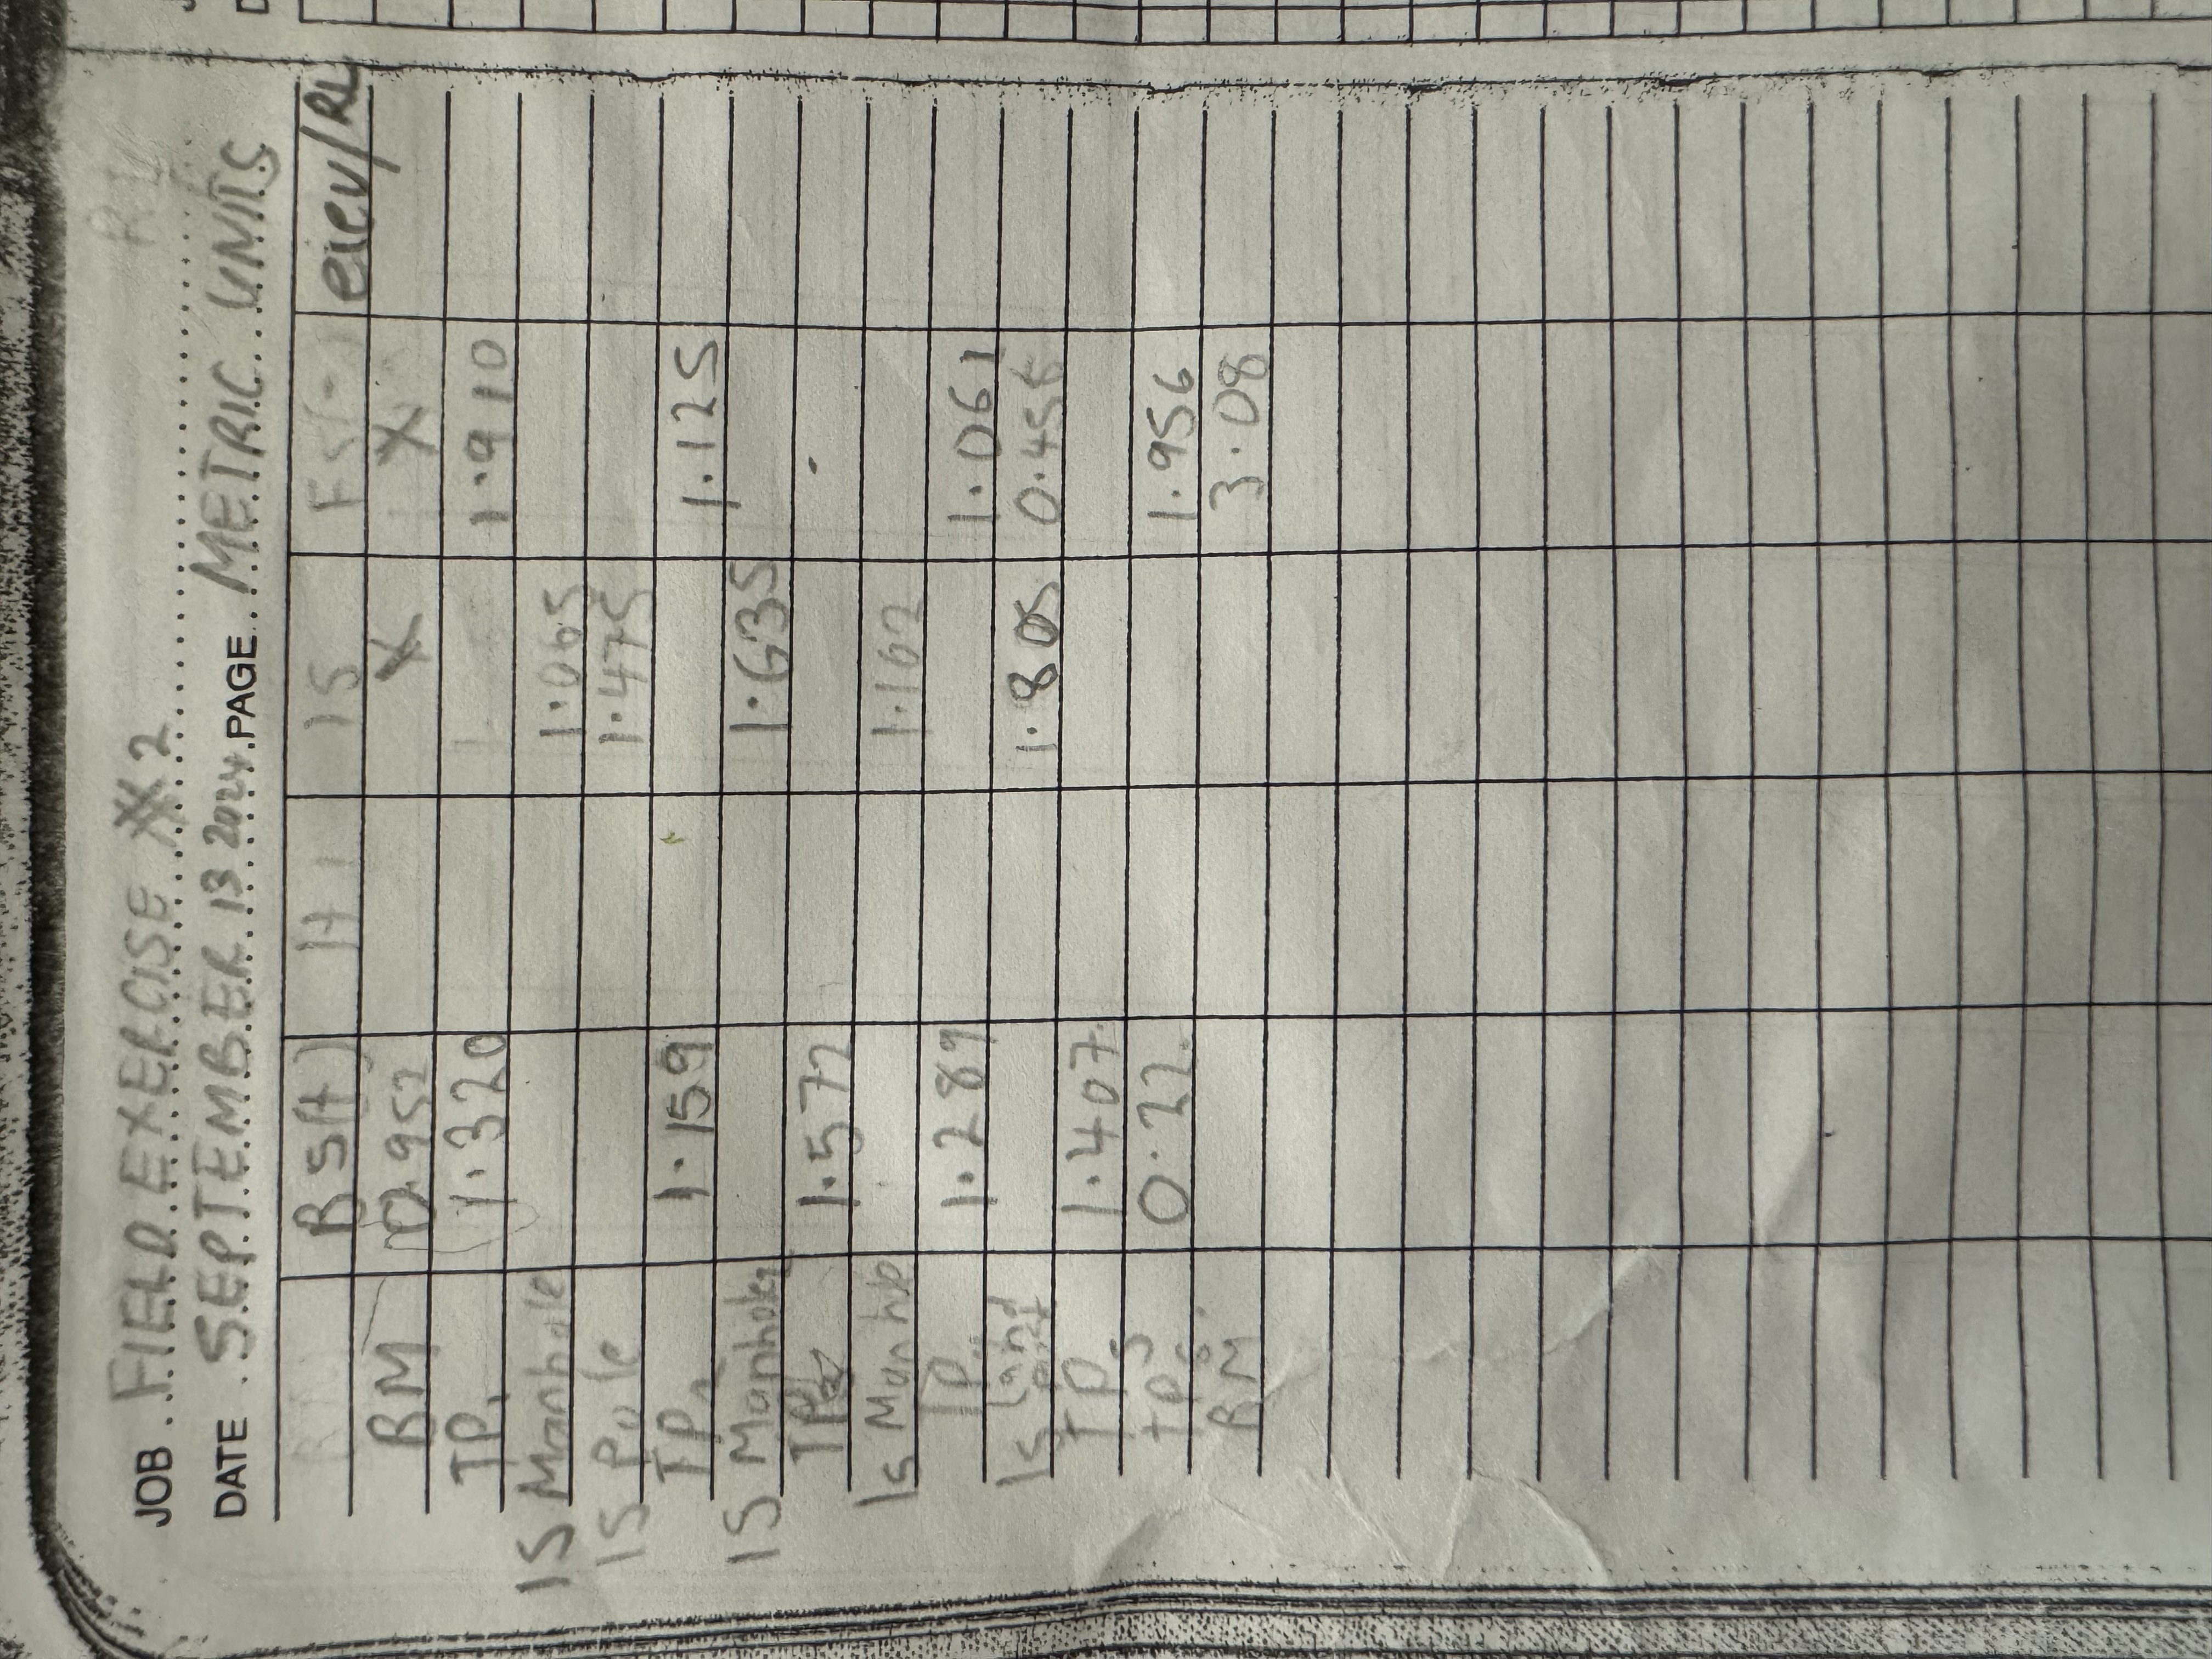 JOB FIELD EXERCISE 2
DATE SEPTEMBER 13 2024 PAGE METRIC UNITS
BS(+) HI IS FS(-) elev/RL
BM 0.952 X X
TP1 1.320 1.910
IS Manhole 1.065
IS Pole 1.475
TP2 1.159 1.125
IS Manhole 1.635
TP 1.572
Is Manhole 1.162
TP 1.289 1.061
Is Land 1.805 0.456
TP 1.407
TPS 0.22 1.956
BM 3.08